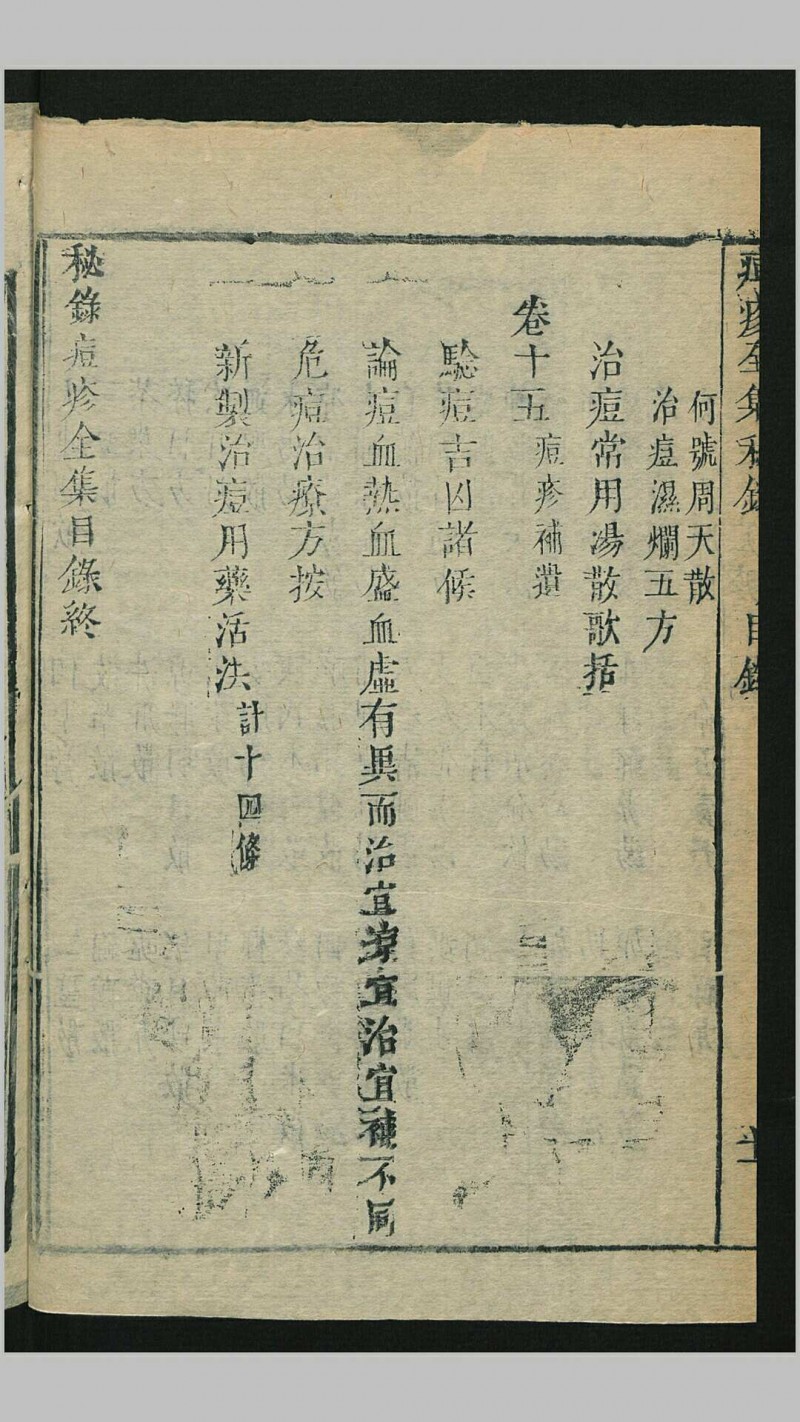 痘疹全集秘錄 目錄
何號周天散
治痘濕爛五方
治痘常用湯散歌括
卷十五 痘疹補遺
驗痘吉凶諸候
論痘血熱血盛血虛有異而治宜涼宜治宜補不同
危痘治療方按
新製治痘用藥活法 計十四條
秘錄痘疹全集目錄終